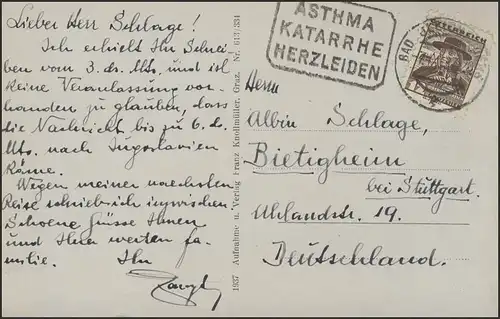 Lieber Herr Schlage!
Ich erhielt Ihr Schrei-
ben vom 3. ds. Mts. und ist
keine Veranlassung vor-
handen zu glauben, dass
die Nachricht bis zu 6. d.
Mts. nach Jugoslavien
käme.
Wegen meiner nächsten
Reise schrieb ich inzwischen
Schoene Grüsse Ihnen
und Ihrer werten Fa-
milie. Ihr
1937 Aufnahme u. Verlag Franz Knollmüller, Graz. Nr. 613/334
ASTHMA
KATARRHE
HERZLEIDEN
BAD
ÖSTERREICH
Herrn
Albin Schlage,
Bietigheim
bei Stuttgart.
Uhlandstr. 19.
Deutschland.